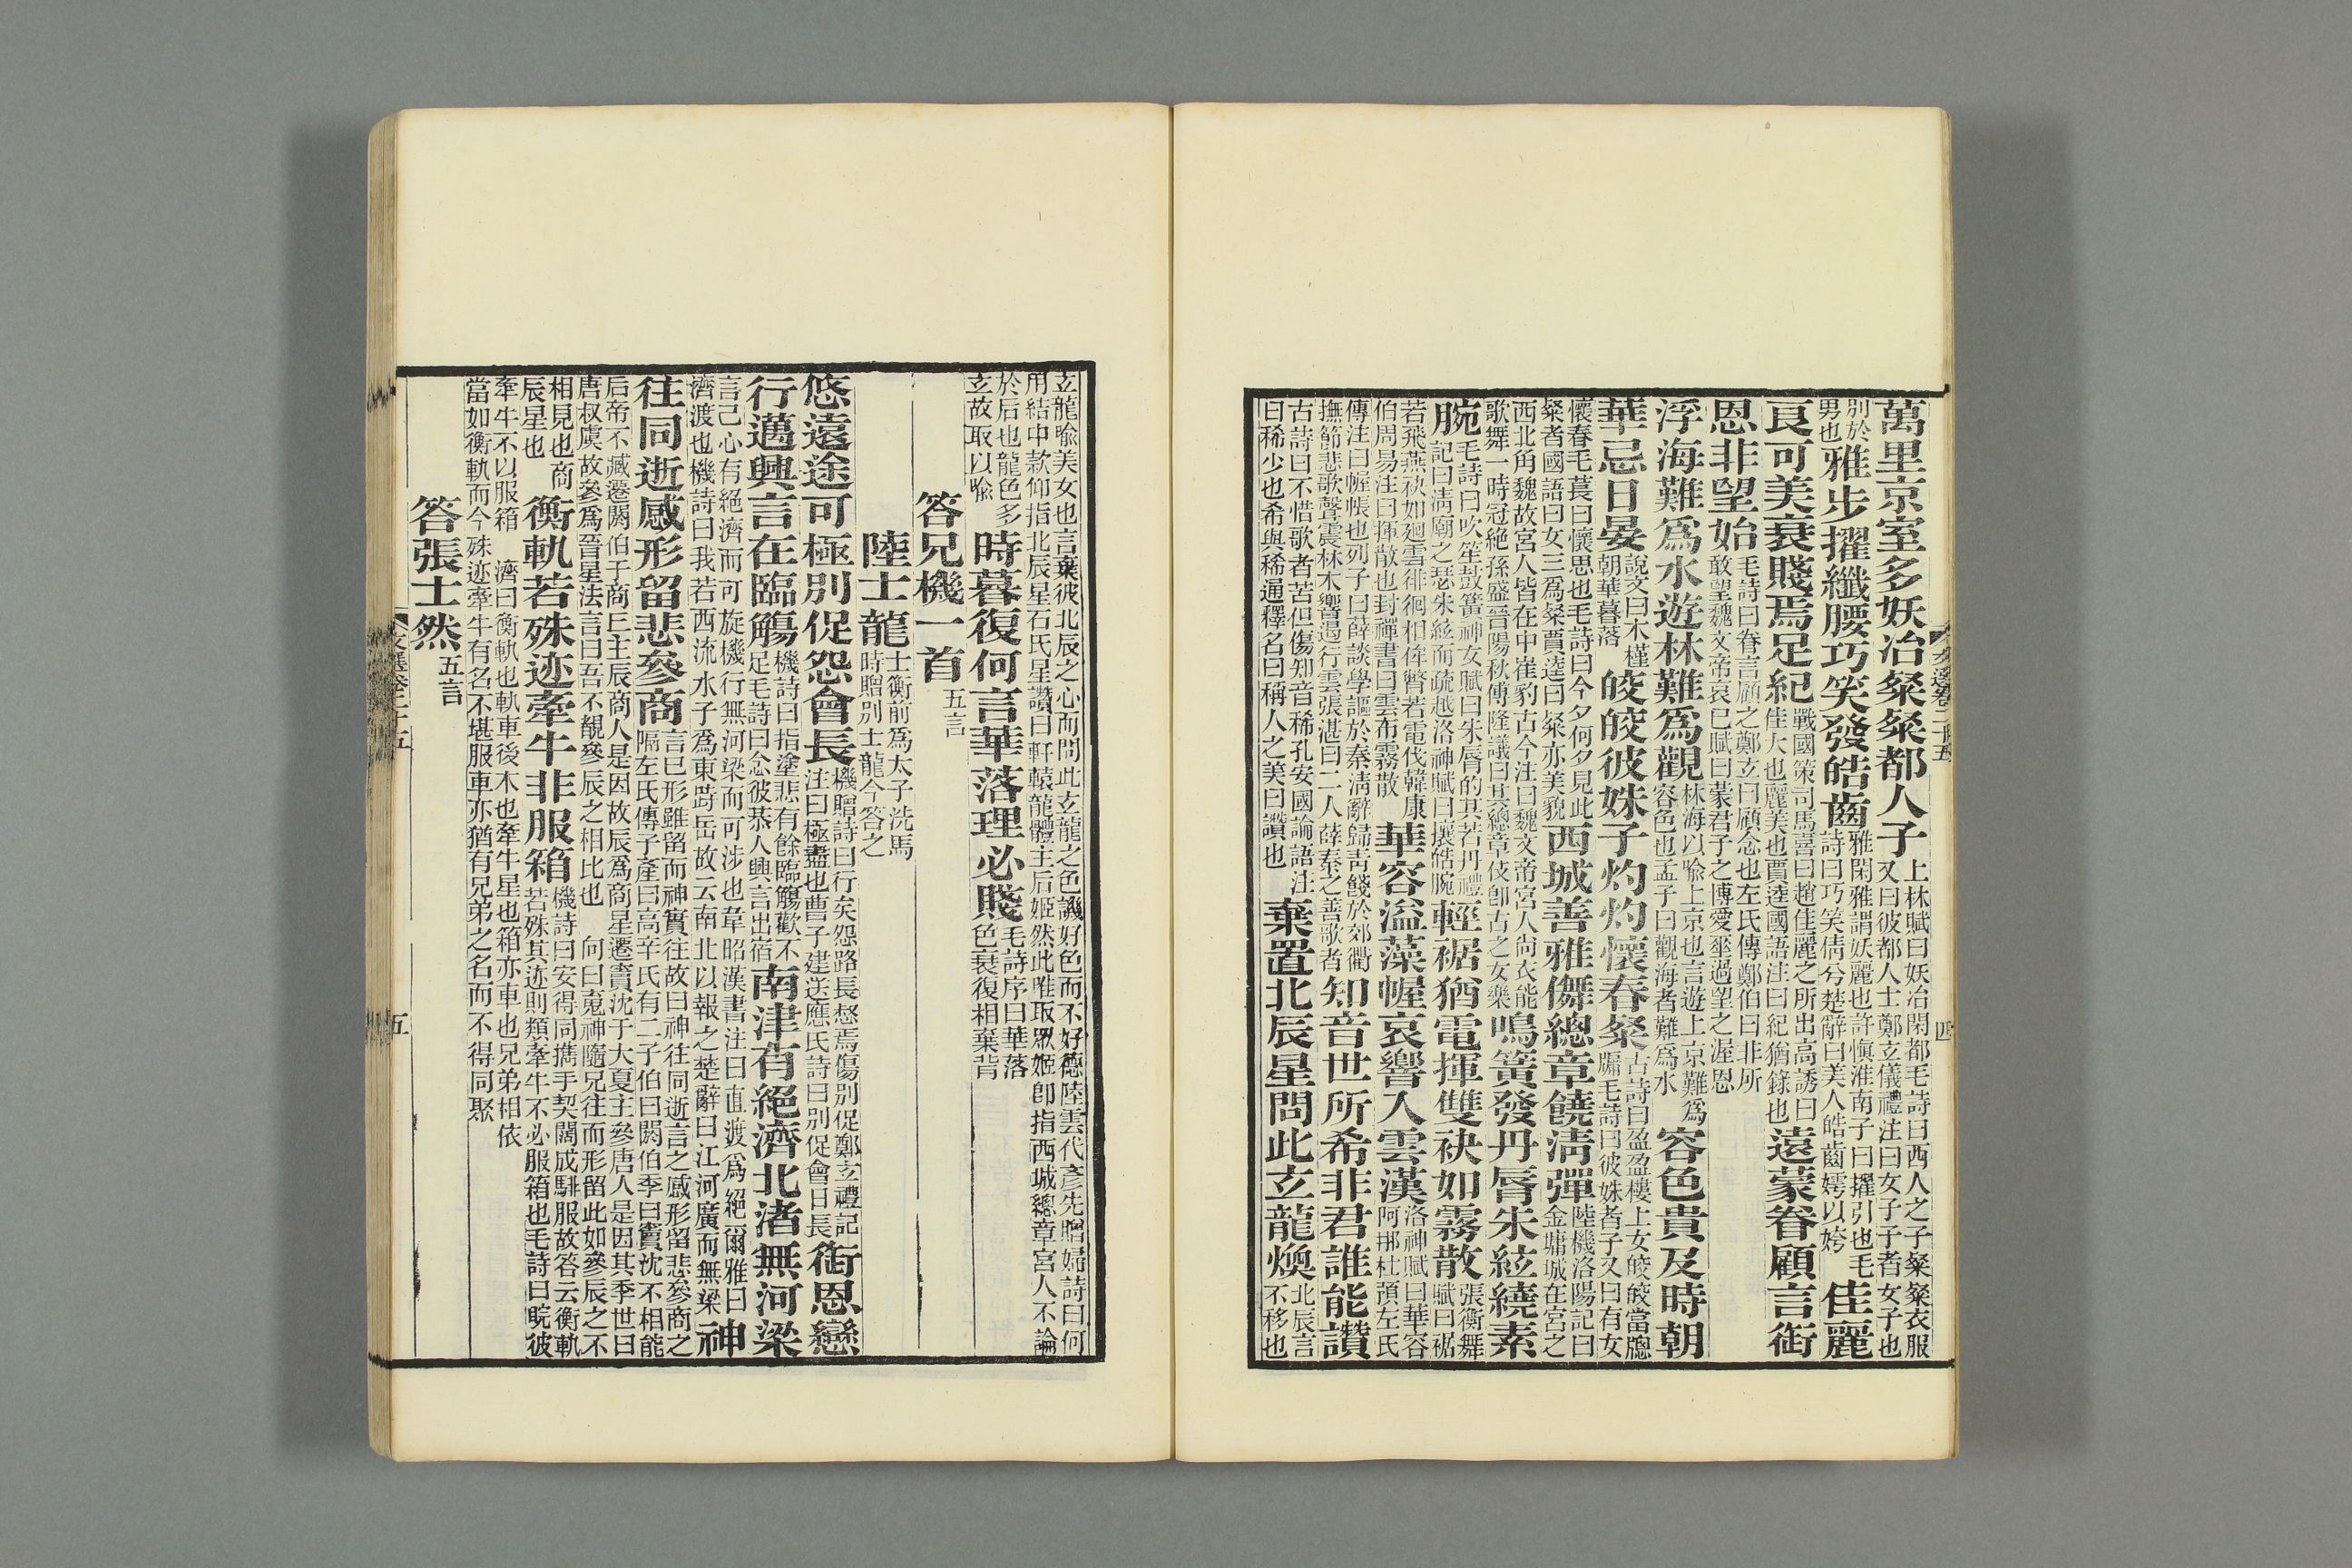 萬里京室多妖冶粲粲都人子上林賦曰妖冶閑都毛詩曰西人之子粲粲衣服
又曰彼都人士鄭玄儀禮注曰女子子者女子也
別於
男也雅步擢纖腰巧笑發皓齒雅閑雅謂妖麗也許愼淮南子曰擢引也毛
詩曰巧笑倩兮楚辭曰美人皓齒嫮以姱佳麗
良可美衰賤焉足紀戰國策司馬喜曰趙佳麗之所出高誘曰
佳大也麗美也賈逵國語注曰紀猶錄也遠蒙眷顧言銜
恩非望始毛詩曰眷言顧之鄭玄曰顧念也左氏傳鄭伯曰非所
敢望魏文帝哀已賦曰蒙君子之博愛埀過望之渥恩
浮海難爲水遊林難爲觀林海以喻上京也言遊上京難爲
容色也孟子曰觀海者難爲水容色貴及時朝
華忌日晏說文曰木槿
朝華暮落皎皎彼姝子灼灼懷春粲古詩曰盈盈樓上女皎皎當牕
牖毛詩曰彼姝者子又曰有女
懷春毛萇曰懷思也毛詩曰今夕何夕見此
粲者國語曰女三爲粲賈逵曰粲亦美貌西城善雅儛總章饒淸彈陸機洛陽記曰
金墉城在宮之
西北角魏故宮人皆在中崔豹古今注曰魏文帝宮人尙衣能
歌舞一時冠絕孫盛晉陽秋傅隆議曰其總章伎卽古之女樂鳴簧發丹脣朱絃繞素
腕毛詩曰吹笙鼓簧神女賦曰朱脣的其若丹禮
記曰淸廟之瑟朱絃而疏越洛神賦曰攘皓腕輕裾猶電揮雙袂如霧散張衡舞
賦曰裾
若飛燕袂如廻雪徘徊相侔瞥若電伐韓康
伯周易注曰揮散也封禪書曰雲布霧散華容溢藻幄哀響入雲漢洛神賦曰華容
阿那杜預左氏
傳注曰幄帳也列子曰薛談學謳於秦淸辭歸靑餞於郊衢
撫節悲歌聲震林木響遏行雲張湛曰二人薛秦之善歌者知音世所希非君誰能讚
古詩曰不惜歌者苦但傷知音稀孔安國論語注
曰稀少也希與稀通釋名曰稱人之美曰讚也棄置北辰星問此玄龍煥北辰言
不移也
文選卷二十五 四
玄龍喻美女也言棄彼北辰之心而問此玄龍之色譏好色而不好德陸雲代彥先贈婦詩曰何
用結中款仰指北辰星石氏星讚曰軒轅龍體主后姬然此唯取眾姬卽指西城總章宮人不論
於后也龍色多
玄故取以喻時暮復何言華落理必賤毛詩序曰華落
色衰復相棄背
答兄機一首五言
陸士龍士衡前爲太子洗馬
時贈別士龍今答之
悠遠途可極別促怨會長機贈詩曰行矣怨路長惄焉傷別促鄭玄禮記
注曰極盡也曹子建送應氏詩曰別促會日長銜恩戀
行邁興言在臨觴機詩曰指塗悲有餘臨觴歡不
足毛詩曰念彼恭人興言出宿南津有絕濟北渚無河梁
言己心有絕濟而可旋機行無河梁而可涉也韋昭漢書注曰直渡爲絕爾雅曰
濟渡也機詩曰我若西流水子爲東跱岳故云南北以報之楚辭曰江河廣而無梁神
往同逝感形留悲參商言已形雖留而神實往故曰神往同逝言之感形留悲參商之
隔左氏傳子產曰高辛氏有二子伯曰閼伯季曰實沈不相能
后帝不臧遷閼伯于商丘主辰商人是因故辰爲商星遷實沈于大夏主參唐人是因其季世曰
唐叔虞故參爲晉星法言曰吾不覩參辰之相比也 向曰蒐神隨兄往而形留此如參辰之不
相見也商
辰星也衡軌若殊迹牽牛非服箱機詩曰安得同攜手契闊成騑服故答云衡軌
若殊其迹則類牽牛不必服箱也毛詩曰睆彼
牽牛不以服箱 濟曰衡軌也軌車後木也牽牛星也箱亦車也兄弟相依
當如衡軌而今殊迹牽牛有名不堪服車亦猶有兄弟之名而不得同聚
答張士然五言
文選卷二十五 五